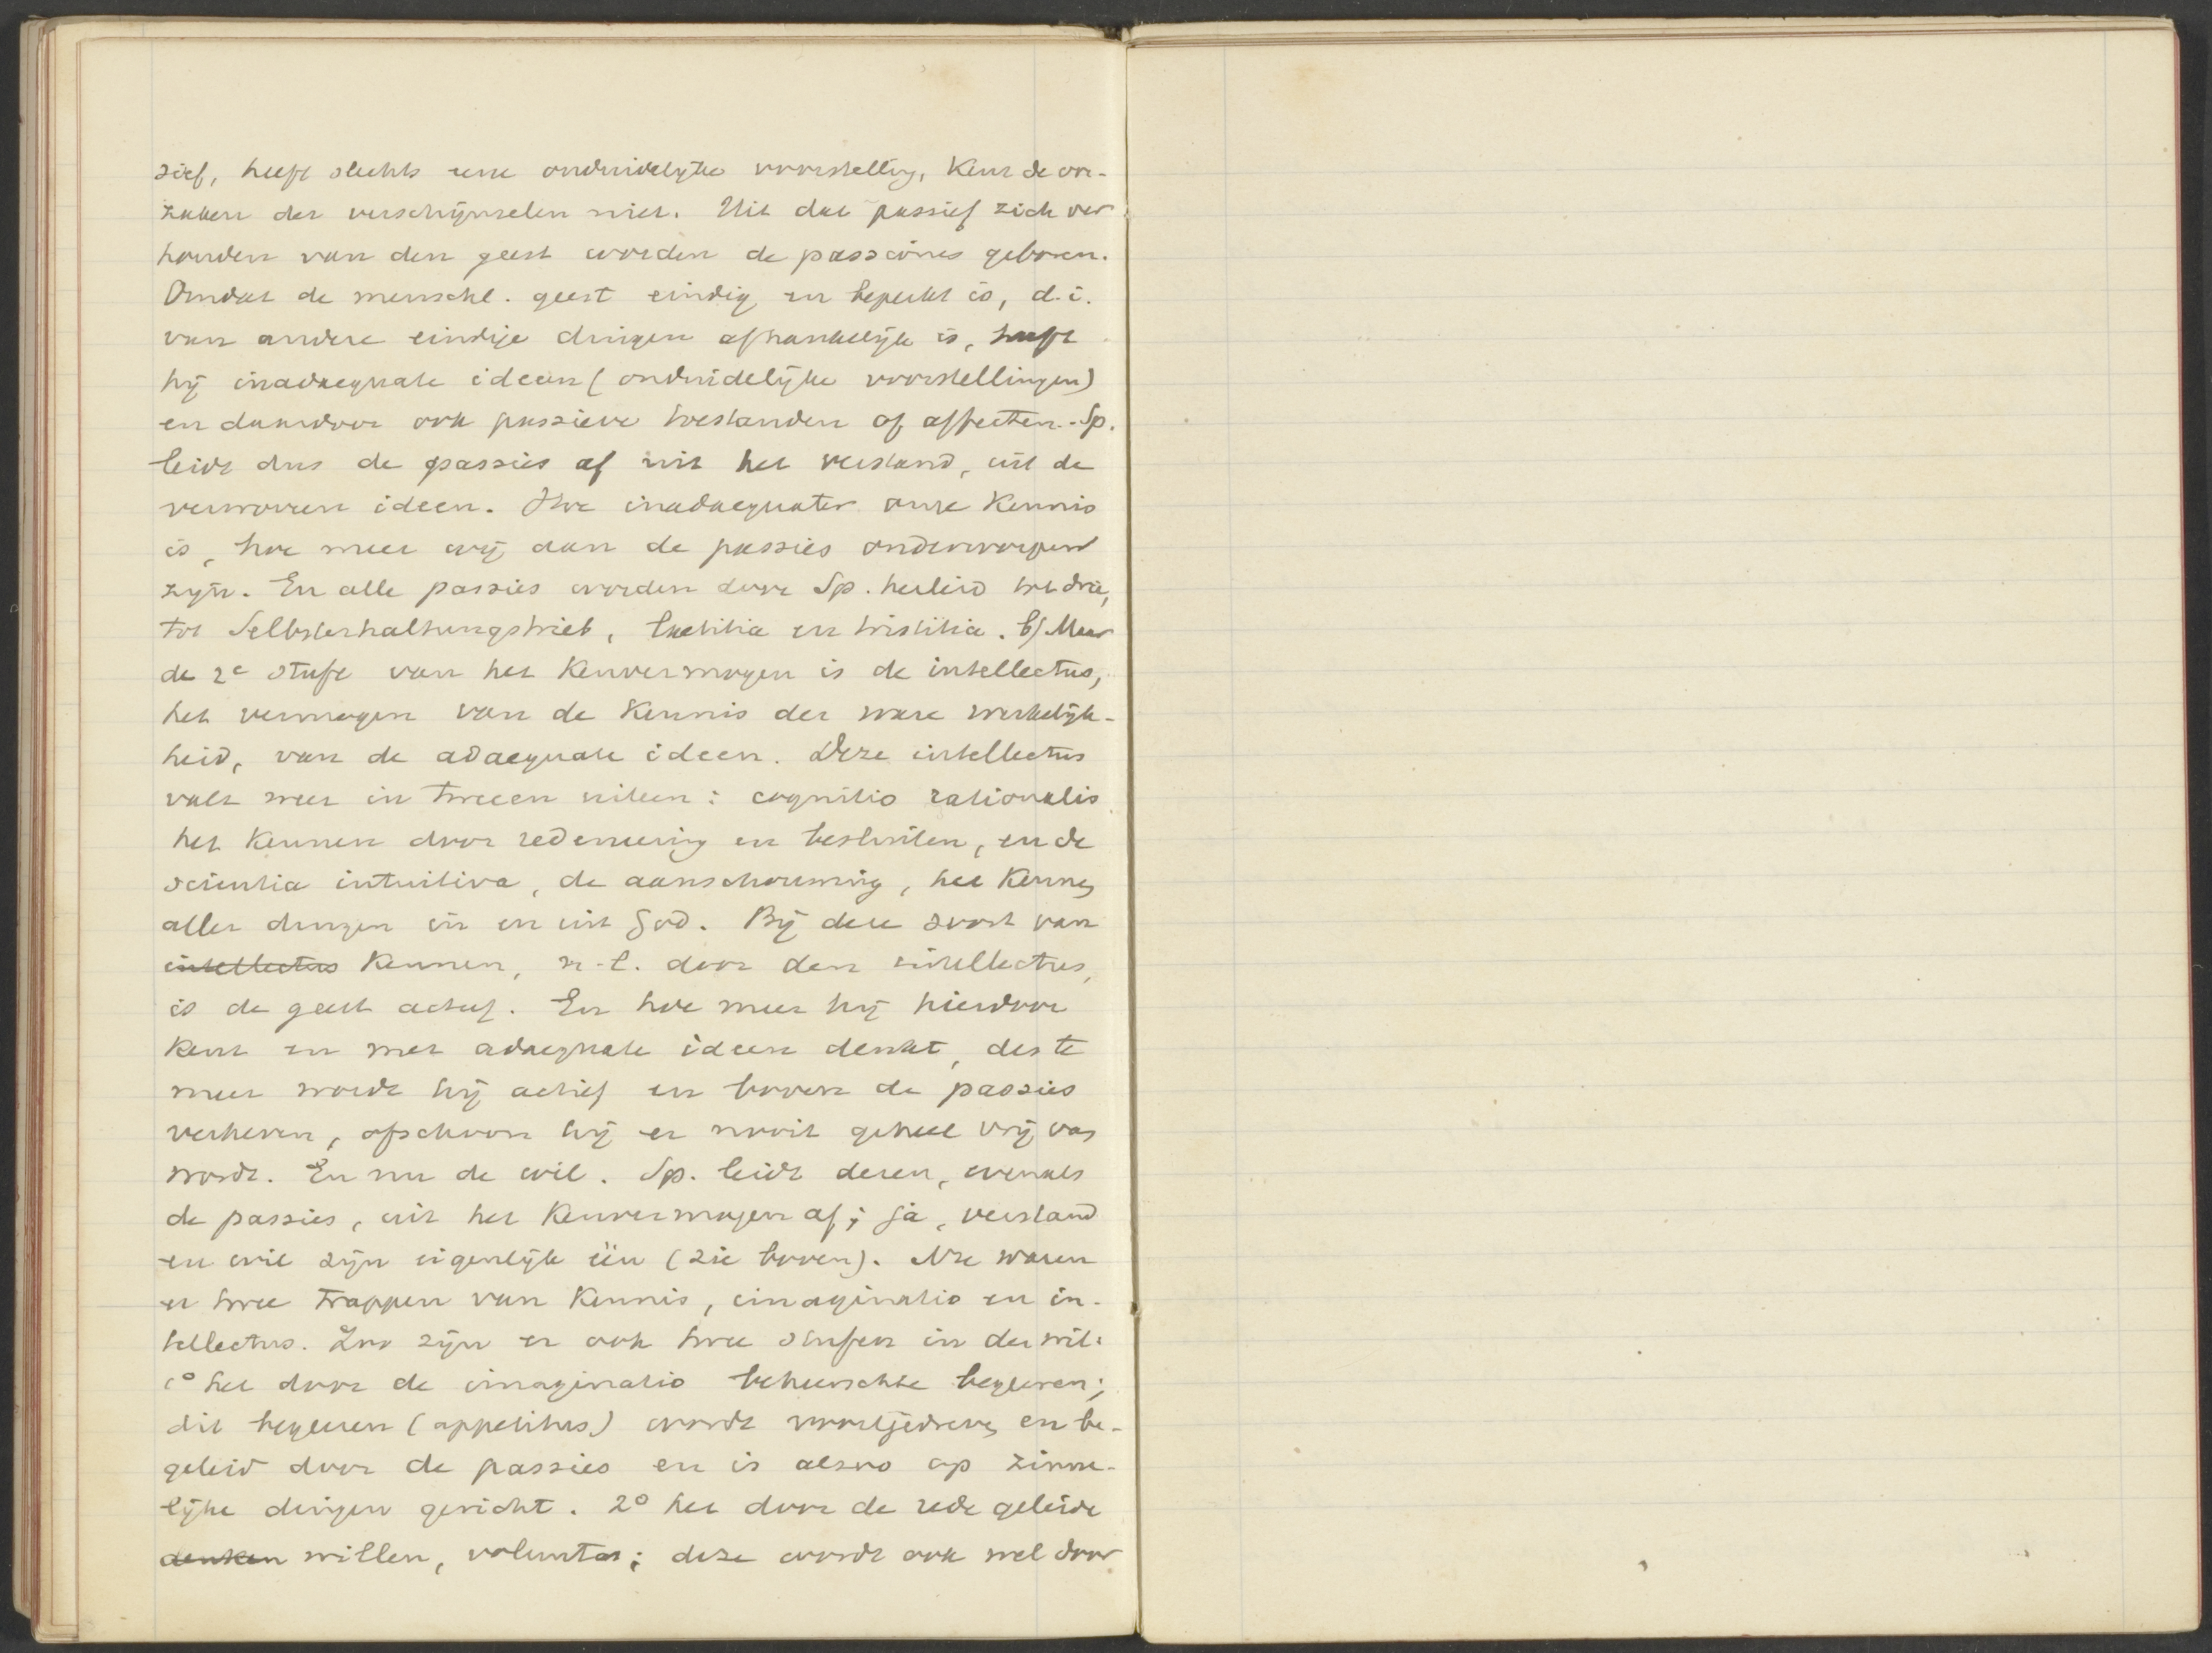 sief, heeft slechts eene onduidelijke voorstelling, kent de oor-
zaken der verschijnselen niet. Uit dat passief zich ver
houden van den geest worden de passiones geboren.
Omdat de menschl. geest eindig en beperkt is, d.i.
van andere eindige dingen afhankelijk is, heeft
hij inadaequate ideeen (onduidelijke voorstellingen)
en daardoor ook passieve toestanden of affecten. Sp.
leidt dus de passies af uit het verstand, uit de
verworren ideen. Hoe inadaequater onze kennis
is, hoe meer wij aan de passies onderworpen
zijn. En alle passies worden door Sp. herleid tot drie,
tot Selbsterhaltungstrieb, laetitia en tristitia. b) Maar
de 2e stufe van het kenvermogen is de intellectus,
het vermogen van de kennis der ware werkelijk-
heid, van de adaequate ideen. Deze intellectus
valt weer in tweeen uiteen: cognitio rationalis
het kennen door redeneering en besluiten, en de
scientia intuitiva, de aanschouwing, het kennen
aller dingen in en uit God. Bij deze soort van
intellectus kennen, n.l. door den intellectus,
is de geest actief. En hoe meer hij hierdoor
kent en met adaequate ideen denkt, des te
meer wordt hij actief en boven de passies
verheven, ofschoon hij er nooit geheel vrij van
wordt. En nu de wil. Sp. leidt dezen, evenals
de passies, uit het kenvermogen af; ja, verstand
en wil zijn eigenlijk één (zie boven). Nu waren
er twee trappen van kennis, imaginatio en in-
tellectus. Zoo zijn er ook twee stufen in den wil:
1° het door de imaginatio beheerschte begeeren;
dit begeeren (appetitus) wordt voortgedreven en be-
geleid door de passies en is alzoo op zinne-
lijke dingen gericht. 2° het door de rede geleide
denken willen, voluntas; deze wordt ook wel door